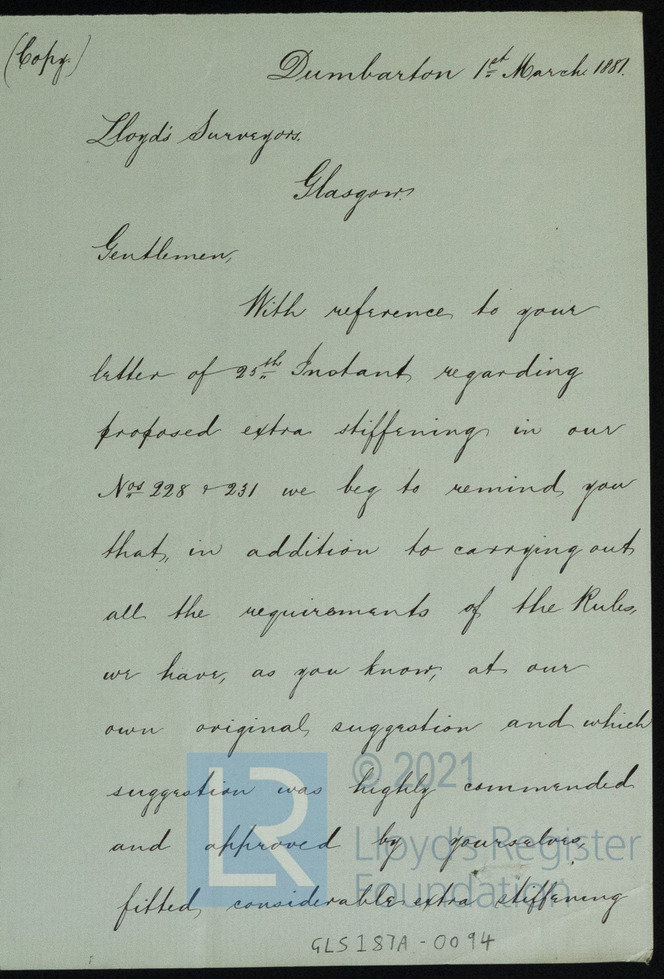 (Copy.)
Dumbarton 1st March 1881.
Lloyd's Surveyors.
Glasgow.
Gentlemen,
With reference to your
letter of 25th Instant regarding
proposed extra stiffening in our
Nos 228 & 231 we beg to remind you
that, in addition to carrying out
all the requirements of the Rules,
we have, as you know, at our
own original suggestion and which
suggestion was highly commended
and approved by yourselves,
fitted considerable extra stiffening
LR
© 2021
Lloyd's Register
Foundation
GLS187A-0094